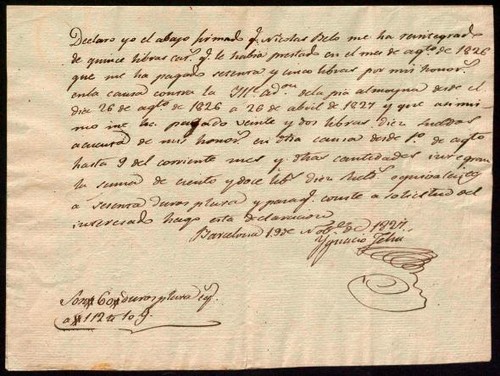 Declaro yo el abajo firmado q. Nicolas Belo me ha reintegrado
de quince libras cat.s q. le habia prestado en el mes de ag.to de 1826
que me ha pagado setenta y cinco libras por mis honor.s
en la causa contra la Ill.e Ad.on de la pia almoyna desde el
dia 26 de ag.to de 1826 a 26 de abril de 1827 y que asimis
mo me ha pagado veinte y dos libras diez sueldos
a cuenta de mis honor.s en otra causa desde 1.o de ag.to
hasta 9 del corriente mes y otras cantidades integran
la suma de ciento y doce lib.s diez suel.s equivalentes
a sesenta duros plata y para q. conste a solicitud del
interesado hago esta declaracion
Barcelona 19 de Nob.re de 1827.
Ygnacio Feliu
Son 60 duros plata q.
a 112 tt 10 s.